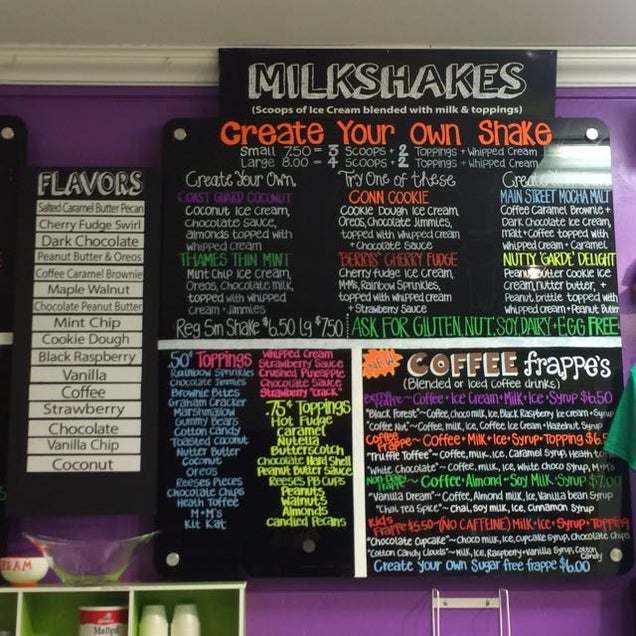 MILKSHAKES
(Scoops of Ice Cream blended with milk & toppings)
Create Your Own Shake
Small 7.50 = 3 Scoops + 2 Toppings + Whipped Cream
Large 8.00 = 4 Scoops + 2 Toppings + Whipped Cream
Create Your Own,
Try One of these
COAST GUARD COCONUT
Coconut Ice cream,
Chocolate sauce,
almonds topped with
whipped cream
THAMES THIN MINT
Mint Chip Ice cream,
Oreos, Chocolate milk,
topped with whipped
cream + Jimmies
CONN COOKIE
Cookie Dough Ice cream
Oreos, Chocolate Jimmies,
topped with whipped cream
+ Chocolate sauce
"BERRYS" CHERRY FUDGE
Cherry fudge ice cream,
M+Ms, Rainbow Sprinkles,
topped with whipped cream
+ Strawberry Sauce
MAIN STREET MOCHA MALT
Coffee Caramel Brownie +
Dark Chocolate Ice Cream,
malt + Coffee topped with
whipped cream + Caramel
NUTTY 'GARDE' DELIGHT
Peanut butter Cookie Ice
Cream, nutter butter, +
Peanut brittle topped with
whipped cream + Peanut Butter
Reg Sm Shake $6.50 Lg $7.50
ASK FOR GLUTEN, NUT, SOY, DAIRY + EGG FREE
FLAVORS
Salted Caramel Butter Pecan
Cherry Fudge Swirl
Dark Chocolate
Peanut Butter & Oreos
Coffee Caramel Brownie
Maple Walnut
Chocolate Peanut Butter
Mint Chip
Cookie Dough
Black Raspberry
Vanilla
Coffee
Strawberry
Chocolate
Vanilla Chip
Coconut
.50¢ Toppings
Rainbow Sprinkles
Chocolate Jimmies
Brownie Bites
Graham Cracker
Marshmallow
Gummy Bears
Cotton Candy
Toasted Coconut
Nutter Butter
Coconut
Oreos
Reeses Pieces
Chocolate Chips
Heath Toffee
M+M's
Kit Kat
Whipped Cream
Strawberry Sauce
Crushed Pineapple
Chocolate Sauce
Strawberry "crack"
.75¢ Toppings
Hot Fudge
Caramel
Nutella
Butterscotch
Chocolate Hard Shell
Peanut Butter Sauce
Reeses PB Cups
Peanuts
Walnuts
Almonds
Candied Pecans
NEW
COFFEE frappe's
(Blended or Iced Coffee drinks)
~Coffee + Ice Cream + Milk + Ice + Syrup $6.50
"Black Forest" ~ Coffee, choco milk, ice, Black Raspberry Ice cream + Syrup
"Coffee Nut" ~ Coffee, milk, ice, Coffee Ice Cream + Hazelnut Syrup
Coffee Frappe ~ Coffee + Milk + Ice + Syrup + Topping $6.5
"Truffle Toffee" ~ Coffee, milk, ice, Caramel Syrup, Heath toffee
"White Chocolate" ~ Coffee, milk, ice, white choco syrup, M+M's
Non-Dairy Frappe ~ Coffee + Almond + Soy Milk + Syrup $7.00
"Vanilla Dream" ~ Coffee, Almond milk, Ice, Vanilla bean Syrup
"Chai Tea Spice" ~ chai, soy milk, ice, cinnamon Syrup
Kids Frappe $5.50~(NO CAFFEINE) Milk + Ice + Syrup + Topping
"Chocolate Cupcake" ~ choco milk, ice, cupcake syrup, chocolate chips
"Cotton Candy Clouds" ~ milk, ice, Raspberry + Vanilla Syrup, Cotton Candy
Create Your Own Sugar free frappe $6.00
EAM
Malted